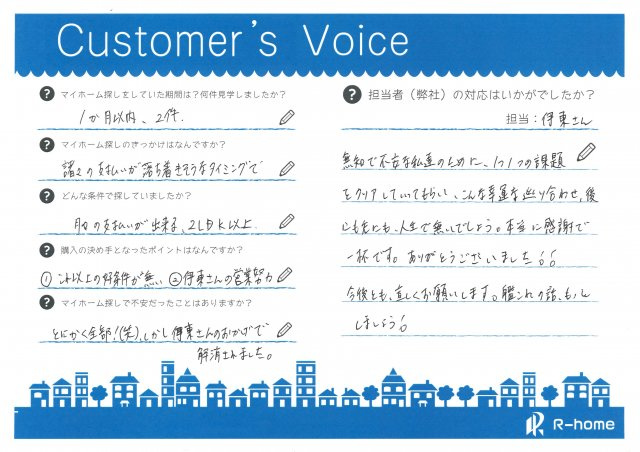 Customer's Voice
? マイホーム探しをしていた期間は？何件見学しましたか？
1か月以内、2件.
? マイホーム探しのきっかけはなんですか？
諸々の支払いが落ち着きそうなタイミングで
? どんな条件で探していましたか？
月々の支払いが出来る、2LDK以上.
? 購入の決め手となったポイントはなんですか？
① これ以上の好条件が無い ②伊東さんの営業努力
? マイホーム探しで不安だったことはありますか？
とにかく全部！(笑)、しかし伊東さんのおかげで
解消されました。
? 担当者（弊社）の対応はいかがでしたか？
担当：伊東さん
無知で不安な私達のために、1つ1つの課題
をクリアしていてもらい、こんな幸運な巡り合わせ、後
にも先にも、人生で無いでしょう。本当に感謝で
一杯です。ありがとうございました！！
今後とも、宜しくお願いします。艦これの話も、
しましょう！
R-home